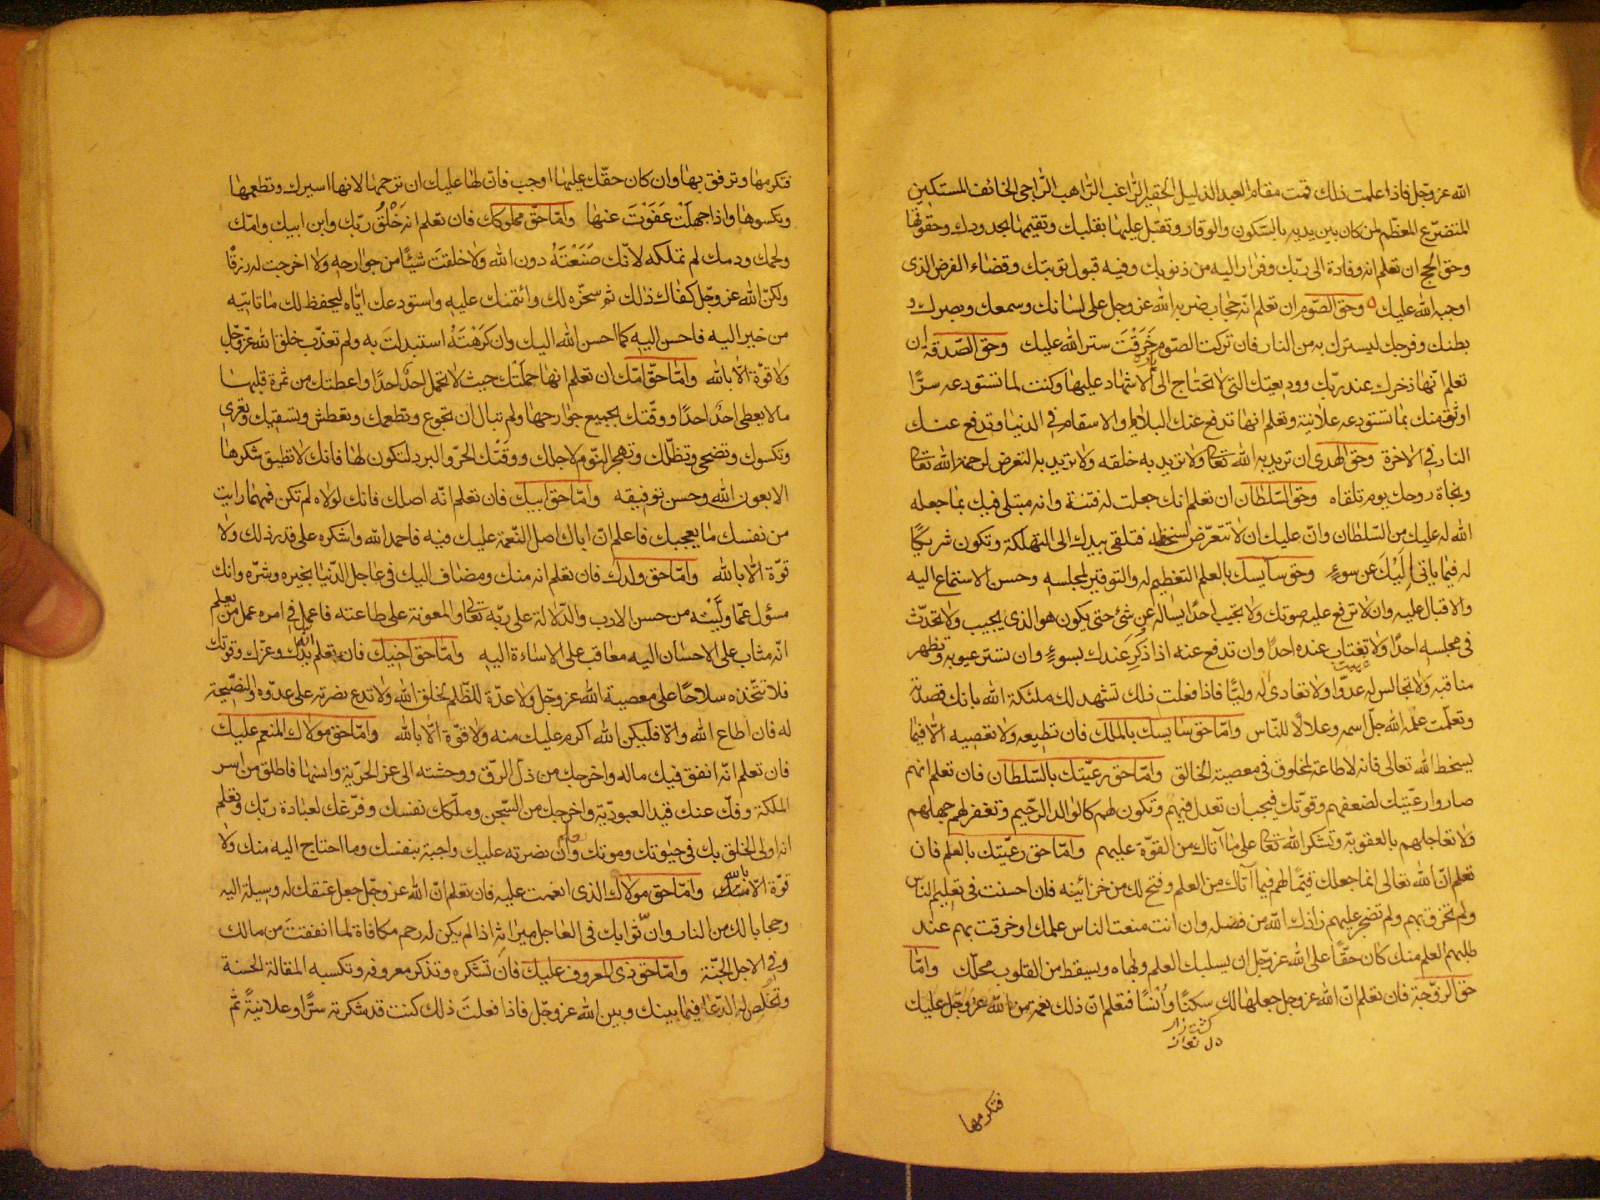 الله عز وجل فاذا علمت ذلك قمت مقام العبد الذليل الحقير الراغب الراهب الراجى الخائف المستكين
المتضرع المعظم لمن كان بين يديه بالسكون والوقار وتقبل عليها بقلبك وتقيمها بحدودها وحقوقها
وحق الحج ان تعلم انه وفادة الى ربك وفرار اليه من ذنوبك وفيه قبول توبتك وقضاء الفرض الذى
اوجبه الله عليك ه وحق الصوم ان تعلم انه حجاب ضربه الله عز وجل على لسانك وسمعك وبصرك و
بطنك وفرجك ليسترك به من النار فان تركت الصوم خرقت ستر الله عليك وحق الصدقة ان
تعلم انها ذخرك عند ربك ووديعتك التى لا تحتاج الى الاشهاد عليها وكنت لما تستودعه سرًا
اوثق منك بما تستودعه علانية وتعلم انها تدفع عنك البلايا والاسقام فى الدنيا وتدفع عنك
النار فى الاخرة وحق الهدى ان تريد به الله تعالى ولا تريد به خلقه ولا تريد به الا التعرض لرحمة الله تعالى
ونجاة روحك يوم تلقاه وحق السلطان ان تعلم انك جعلت له فتنة وانه مبتلى فيك بما جعله
الله له عليك من السلطان وان عليك ان لا تتعرض لسخطه فتلقى بيدك الى التهلكة وتكون شريكًا
له فيما ياتى اليك من سوء وحق سايسك بالعلم التعظيم له والتوقير لمجلسه وحسن الاستماع اليه
والاقبال عليه وان لا ترفع عليه صوتك ولا تجيب احدًا يساله عن شئ حتى يكون هو الذى يجيب ولا تحدث
فى مجلسه احدًا ولا تغتاب عنده احدًا وان تدفع عنه اذا ذكر عندك بسوء وان تستر عيوبه وتظهر
مناقبه ولا تجالس له عدوًا ولا تعادى له وليًا فاذا فعلت ذلك تشهد لك ملئكة الله بانك قصدته
وتعلمت علمه لله جل اسمه وعلا لا للناس واما حق سايسك بالملك فان تطيعه ولا تعصيه الا فيما
يسخط الله تعالى فانه لا طاعة لمخلوق فى معصية الخالق واما حق رعيتك بالسلطان فان تعلم انهم
صاروا رعيتك لضعفهم وقوتك فيجب ان تعدل فيهم وتكون لهم كالوالد الرحيم وتغفر لهم جهلهم
ولا تعاجلهم بالعقوبة وتشكر الله تعالى على ما آتاك من القوة عليهم واما حق رعيتك بالعلم فان
تعلم ان الله تعالى انما جعلك قيمًا لهم فيما آتاك من العلم وفتح لك من خزائنه فان احسنت فى تعليم الناس
ولم تخرق بهم ولم تضجر عليهم زادك الله من فضله وان انت منعت الناس علمك او خرقت بهم عند
طلبهم العلم منك كان حقًا على الله عز وجل ان يسلبك العلم وبهاه ويسقط من القلوب محلك واما
حق الزوجة فان تعلم ان الله عز وجل جعلها لك سكنًا وانسًا فتعلم ان ذلك نعمة من الله عز وجل عليك
فتكرمها
فتكرمها وترفق بها وان كان حقك عليها اوجب فان لها عليك ان ترحمها لانها اسيرك وتطعمها
وتكسوها واذا جهلت عفوت عنها واما حق مملوكك فان تعلم انه خلق ربك وابن ابيك وامك
ولحمك ودمك لم تملكه لانك صنعته دون الله ولا خلقت شيئًا من جوارحه ولا اخرجت له رزقًا
ولكن الله عز وجل كفاك ذلك ثم سخره لك وائتمنك عليه واستودعك اياه ليحفظ لك ما تاتيه
من خير اليه فاحسن اليه كما احسن الله اليك وان كرهته استبدلت به ولم تعذب خلق الله عز وجل
ولا قوة الا بالله واما حق امك ان تعلم انها حملتك حيث لا يحتمل احد احدًا واعطتك من ثمرة قلبها
ما لا يعطى احد احدًا ووقتك بجميع جوارحها ولم تبال ان تجوع وتطعمك وتعطش وتسقيك وتعرى
وتكسوك وتضحى وتظلك وتهجر النوم لاجلك ووقتك الحر والبرد لتكون لها فانك لا تطيق شكرها
الا بعون الله وحسن توفيقه واما حق ابيك فان تعلم انه اصلك فانك لولاه لم تكن فمهما رايت
من نفسك ما يعجبك فاعلم ان اباك اصل النعمة عليك فيه فاحمد الله واشكره على قدر ذلك ولا
قوة الا بالله واما حق ولدك فان تعلم انه منك ومضاف اليك فى عاجل الدنيا بخيره وشره وانك
مسؤل عما وليته من حسن الادب والدلالة على ربه تعالى والمعونة على طاعته فاعمل فى امره عمل من يعلم
انه مثاب على الاحسان اليه معاقب على الاساءة اليه واما حق اخيك فان تعلم انه يدك وعزك وقوتك
فلا تتخذه سلاحًا على معصية الله عز وجل ولا عدة للظلم لخلق الله ولا تدع نصرته على عدوه والنصيحة
له فان اطاع الله والا فليكن الله اكرم عليك منه ولا قوة الا بالله واما حق مولاك المنعم عليك
فان تعلم انه انفق فيك ماله واخرجك من ذل الرق ووحشته الى عز الحرية وانسها فاطلق من اسر
الملكة وفك عنك قيد العبودية واخرجك من السجن وملكك نفسك وفرغك لعبادة ربك وتعلم
انه اولى الخلق بك فى حيوتك وموتك وان نصرته عليك واجبة بنفسك وما احتاج اليه منك ولا
قوة الا بالله واما حق مولاك الذى انعمت عليه فان تعلم ان الله عز وجل جعل عتقك له وسيلة اليه
وحجابًا لك من النار وان ثوابك فى العاجل ميراثه اذا لم يكن له رحم مكافاة لما انفقت من مالك
وفى الاجل الجنة واما حق ذى المعروف عليك فان تشكره وتذكر معروفه وتكسبه المقالة الحسنة
وتخلص له الدعا فيما بينك وبين الله عز وجل فاذا فعلت ذلك كنت قد شكرته سرًا وعلانيةً ثم